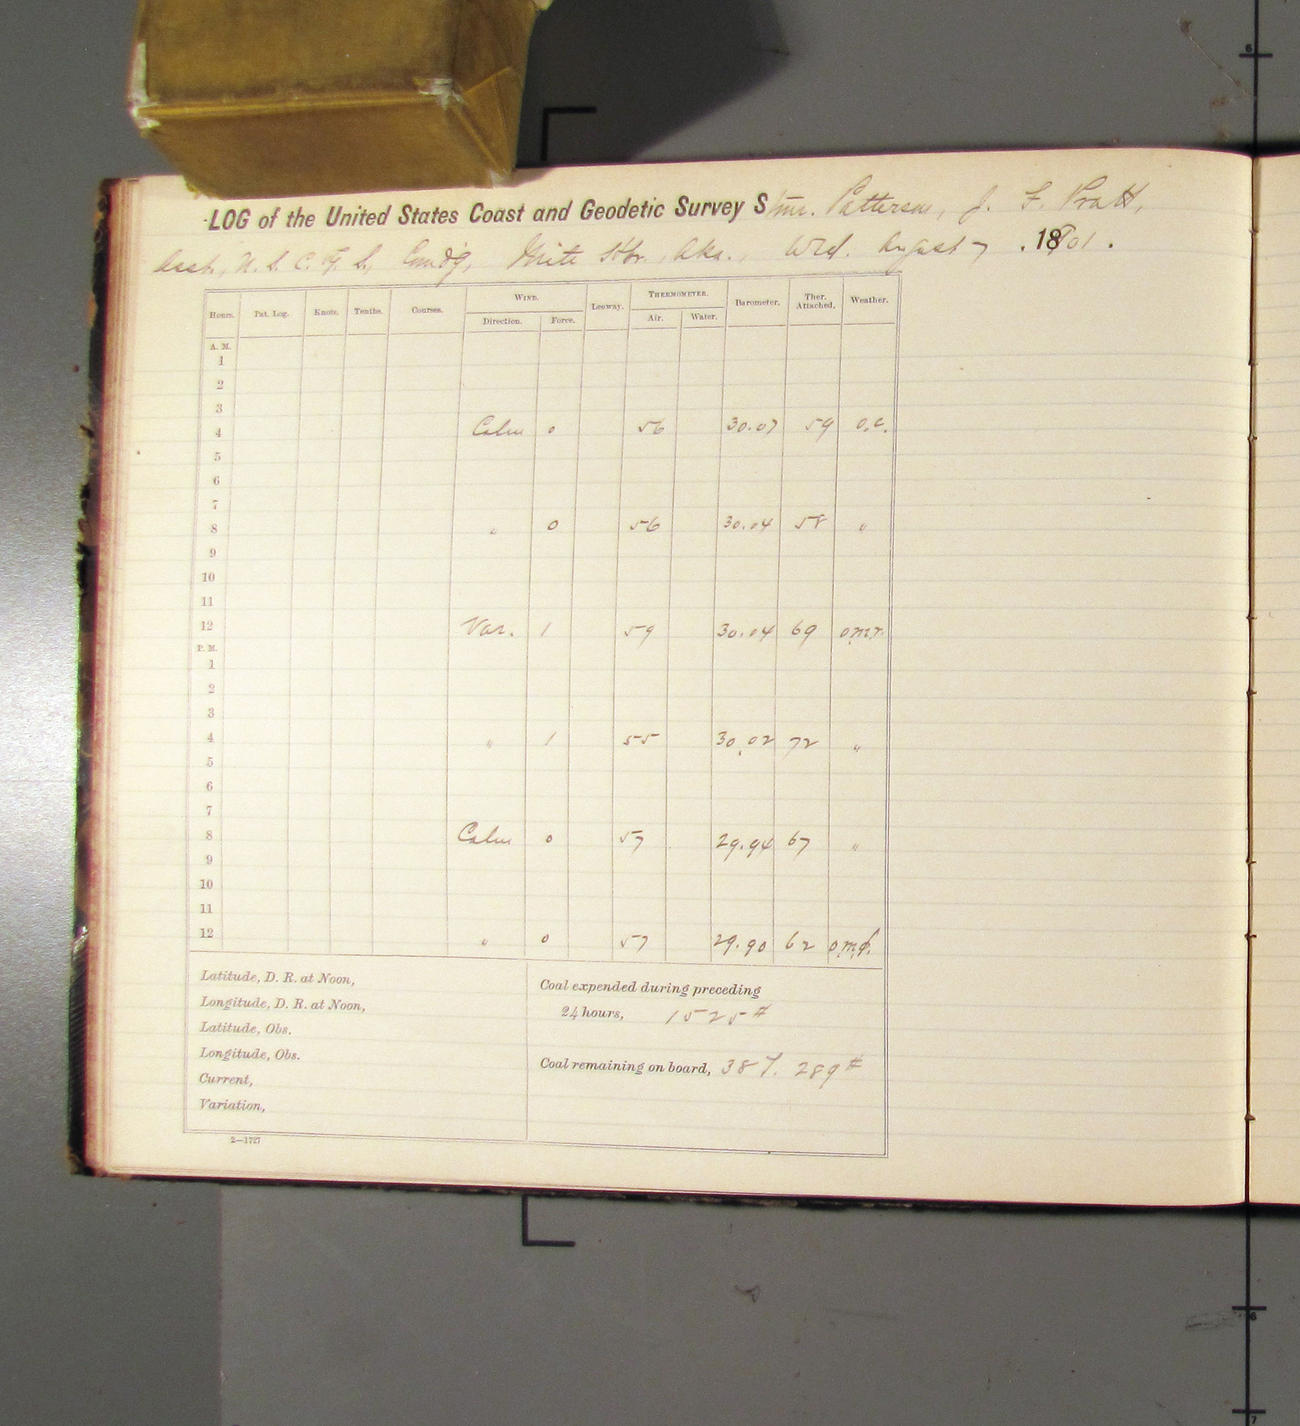 LOG of the United States Coast and Geodetic Survey Stmr. Patterson, J. F. Pratt,
Asst., U. S. C. & G. S., Comd'g, Aka., Wed. August 7, 1901.
Hours. Pat. Log. Knots. Tenths. Courses. WIND. Leeway. THERMOMETER. Barometer. Ther. Attached. Weather.
Direction. Force. Air. Water.
A. M.
1
2
3
4 Calm 0 56 30.07 59 o.c.
5
6
7
8 " 0 56 30.04 58 "
9
10
11
12 Var. 1 59 30.04 69 o.m.r.
P. M.
1
2
3
4 " 1 55 30.02 72 "
5
6
7
8 Calm 0 57 29.94 67 "
9
10
11
12 " 0 57 29.90 62
Latitude, D. R. at Noon,
Longitude, D. R. at Noon,
Latitude, Obs.
Longitude, Obs.
Current,
Variation,
Coal expended during preceding
24 hours, 1525#
Coal remaining on board, 38 T. 289#
2—1727
6
6
7